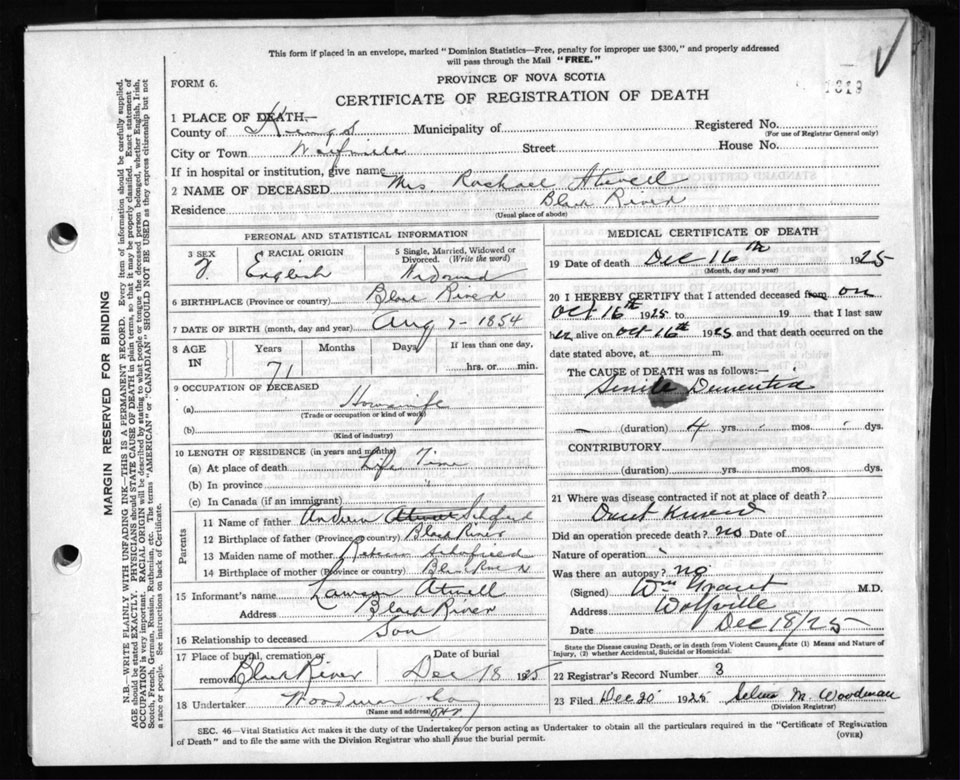 This form if placed in an envelope, marked "Dominion Statistics—Free, penalty for improper use $300," and properly addressed
will pass through the Mail "FREE."
FORM 6.
PROVINCE OF NOVA SCOTIA
1819
CERTIFICATE OF REGISTRATION OF DEATH
1 PLACE OF DEATH—
County of Kings Municipality of Registered No.
(For use of Registrar General only)
City or Town Wolfville Street House No.
If in hospital or institution, give name
2 NAME OF DECEASED Mrs Rachael Atwell
Residence Black River
(Usual place of abode)
PERSONAL AND STATISTICAL INFORMATION
3 SEX F
4 RACIAL ORIGIN English
5 Single, Married, Widowed or Divorced. (Write the word) Widowed
6 BIRTHPLACE (Province or country) Black River
7 DATE OF BIRTH (month, day and year) Aug 7 - 1854
8 AGE IN Years Months Days If less than one day,
71 hrs. or min.
9 OCCUPATION OF DECEASED
(a) Housewife
(Trade or occupation or kind of work)
(b)
(Kind of industry)
10 LENGTH OF RESIDENCE (in years and months)
(a) At place of death Life Time
(b) In province "
(c) In Canada (if an immigrant)
Parents
11 Name of father Andrew Atwell
12 Birthplace of father (Province or country) Black River
13 Maiden name of mother Schofield
14 Birthplace of mother (Province or country) Black River
15 Informant's name Lawson Atwell
Address Black River
16 Relationship to deceased Son
17 Place of burial, cremation or Date of burial
removal Black River Dec 18 1925
18 Undertaker Woodman Co
(Name and address)
MEDICAL CERTIFICATE OF DEATH
19 Date of death Dec 16th 1925
(Month, day and year)
20 I HEREBY CERTIFY that I attended deceased from on
Oct 16th 1925 to 19 that I last saw
her alive on Oct 16th 1925 and that death occurred on the
date stated above, at m.
The CAUSE of DEATH was as follows:—
Senile Dementia
(duration) 4 yrs. mos. dys.
CONTRIBUTORY
(duration) yrs. mos. dys.
21 Where was disease contracted if not at place of death?
Did an operation precede death? no Date of
Nature of operation
Was there an autopsy? no
(Signed) Wm Grant M.D.
Address Wolfville
Date Dec 18/25
State the Disease causing Death, or in death from Violent Causes, state (1) Means and Nature of
Injury, (2) whether Accidental, Suicidal or Homicidal.
22 Registrar's Record Number 3
23 Filed Dec 20 1925 Selina M. Woodman
(Division Registrar)
SEC. 46—Vital Statistics Act makes it the duty of the Undertaker or person acting as Undertaker to obtain all the particulars required in the "Certificate of Registration
of Death" and to file the same with the Division Registrar who shall issue the burial permit.
(OVER)
MARGIN RESERVED FOR BINDING
N.B.—WRITE PLAINLY WITH UNFADING INK—THIS IS A PERMANENT RECORD. Every item of information should be carefully supplied.
AGE should be stated EXACTLY. PHYSICIANS should STATE CAUSE OF DEATH in plain terms, so that it may be properly classified. Exact statement of
OCCUPATION is very important. RACIAL ORIGIN will be described by stating to what people or tongue the deceased person belonged, whether English, Irish,
Scotch, French, German, Russian, Ruthenian, etc. The terms "AMERICAN" or "CANADIAN" SHOULD NOT BE USED as they express citizenship but not
a race or people. See instructions on back of Certificate.